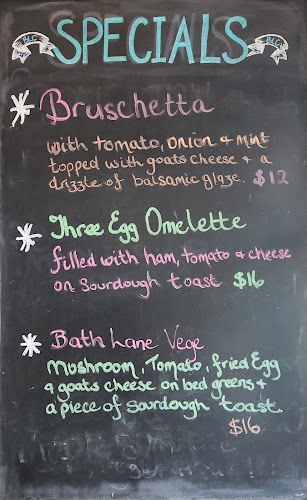 SPECIALS
BLC
BLC
Bruschetta
with tomato, onion & mint
topped with goats cheese & a
drizzle of balsamic glaze. $12
Three Egg Omelette
filled with ham, tomato & cheese
on sourdough toast $16
Bath Lane Vege
Mushroom, Tomato, fried Egg
& goats cheese on bed greens &
a piece of sourdough toast
$16